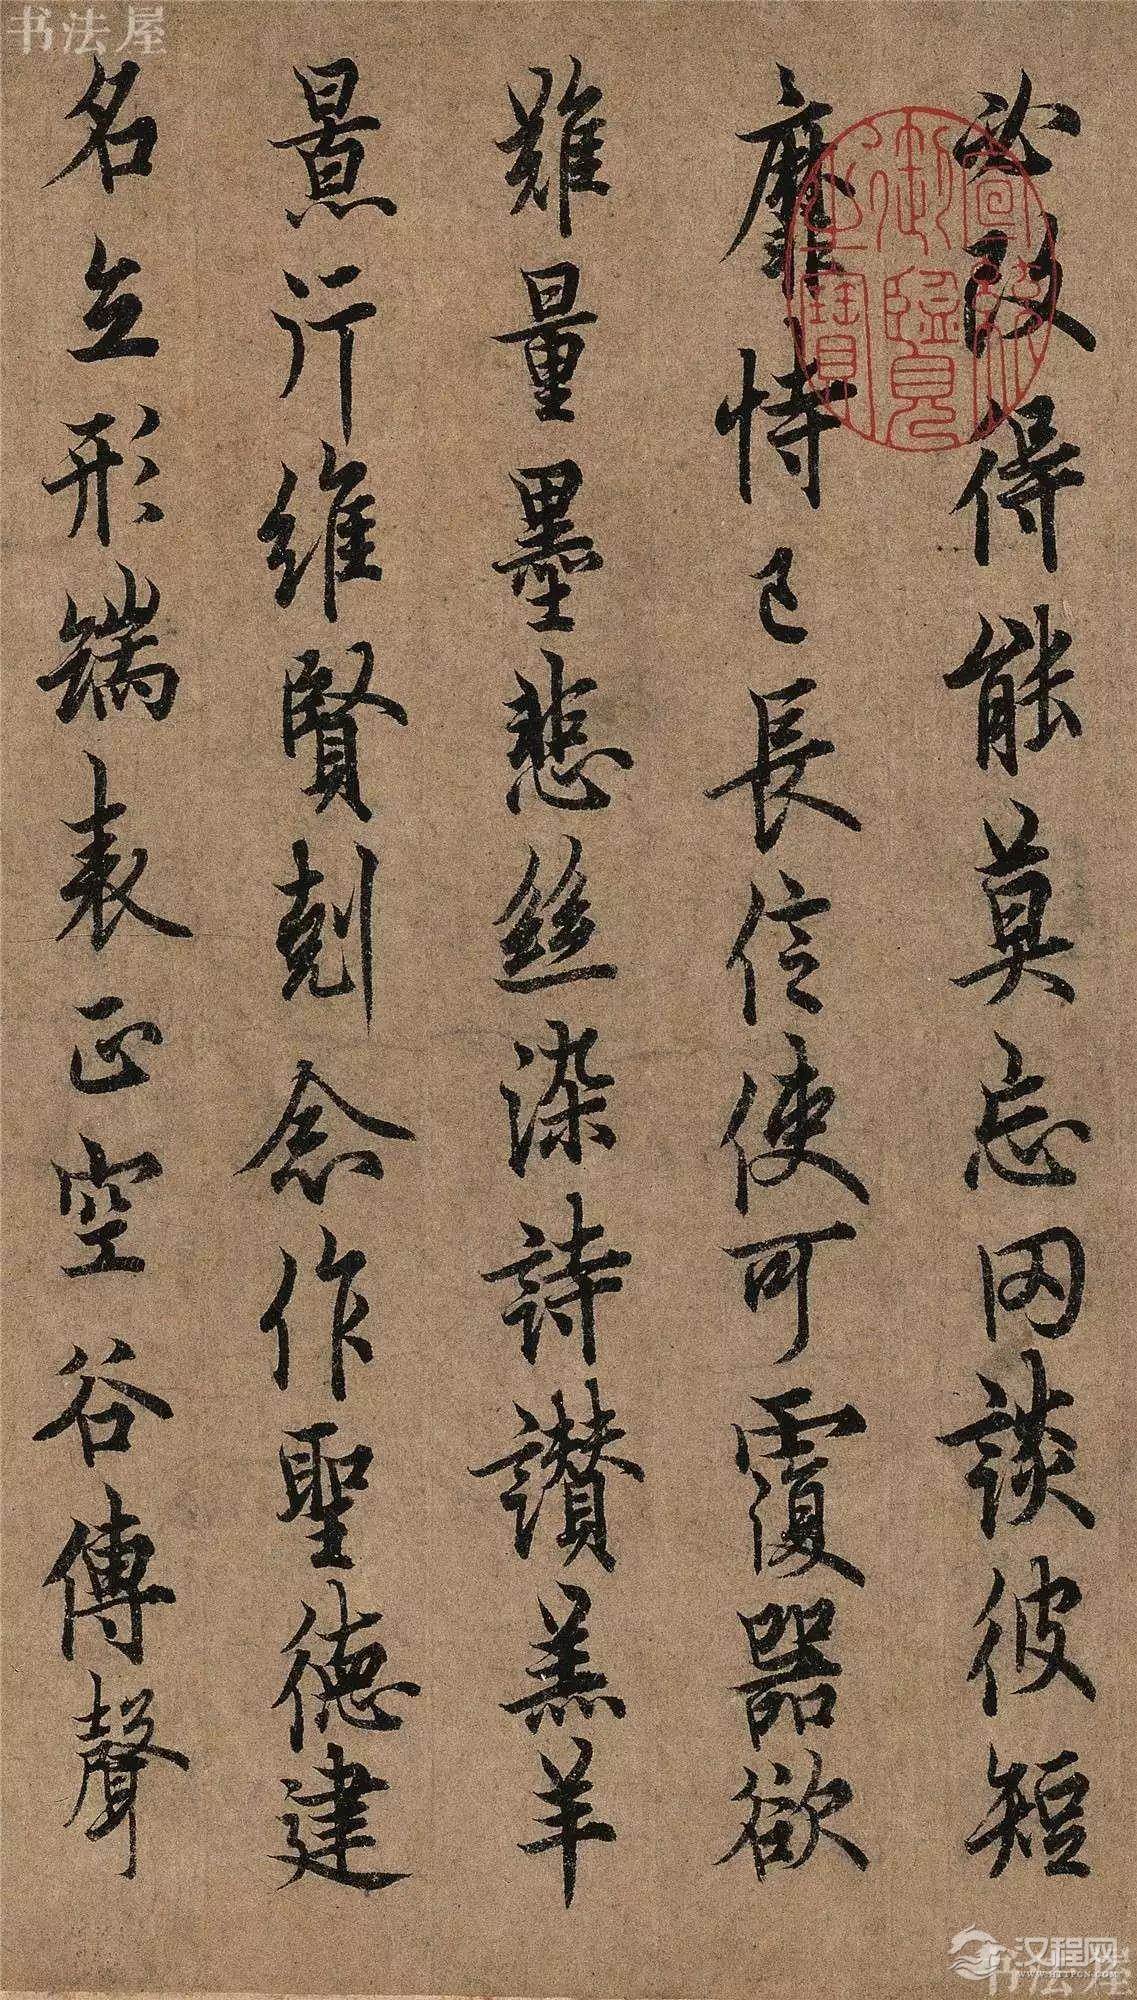 必改得能莫忘罔談彼短
靡恃己長信使可覆器欲
難量墨悲絲染詩讚羔羊
景行維賢剋念作聖德建
名立形端表正空谷傳聲
宣統御覽之寶
书法屋
汉程网
WWW.HTTPCN.COM
书法屋